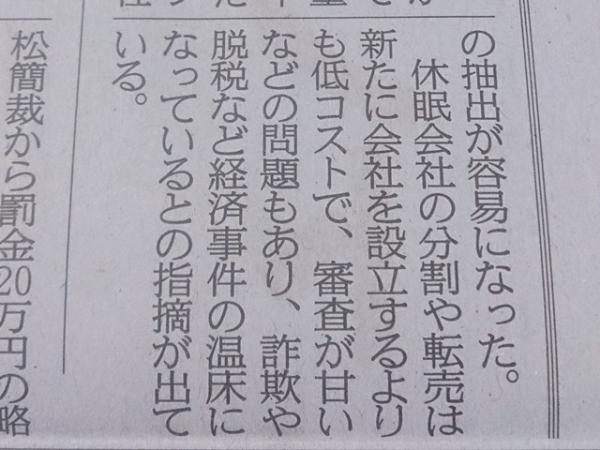 の抽出が容易になった。
　休眠会社の分割や転売は
新たに会社を設立するより
も低コストで、審査が甘い
などの問題もあり、詐欺や
脱税など経済事件の温床に
なっているとの指摘が出て
いる。
松簡裁から罰金20万円の略